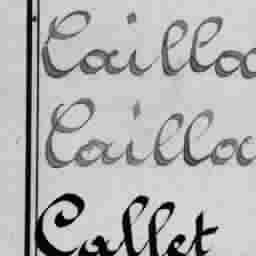 Cailla
Cailla
Callet